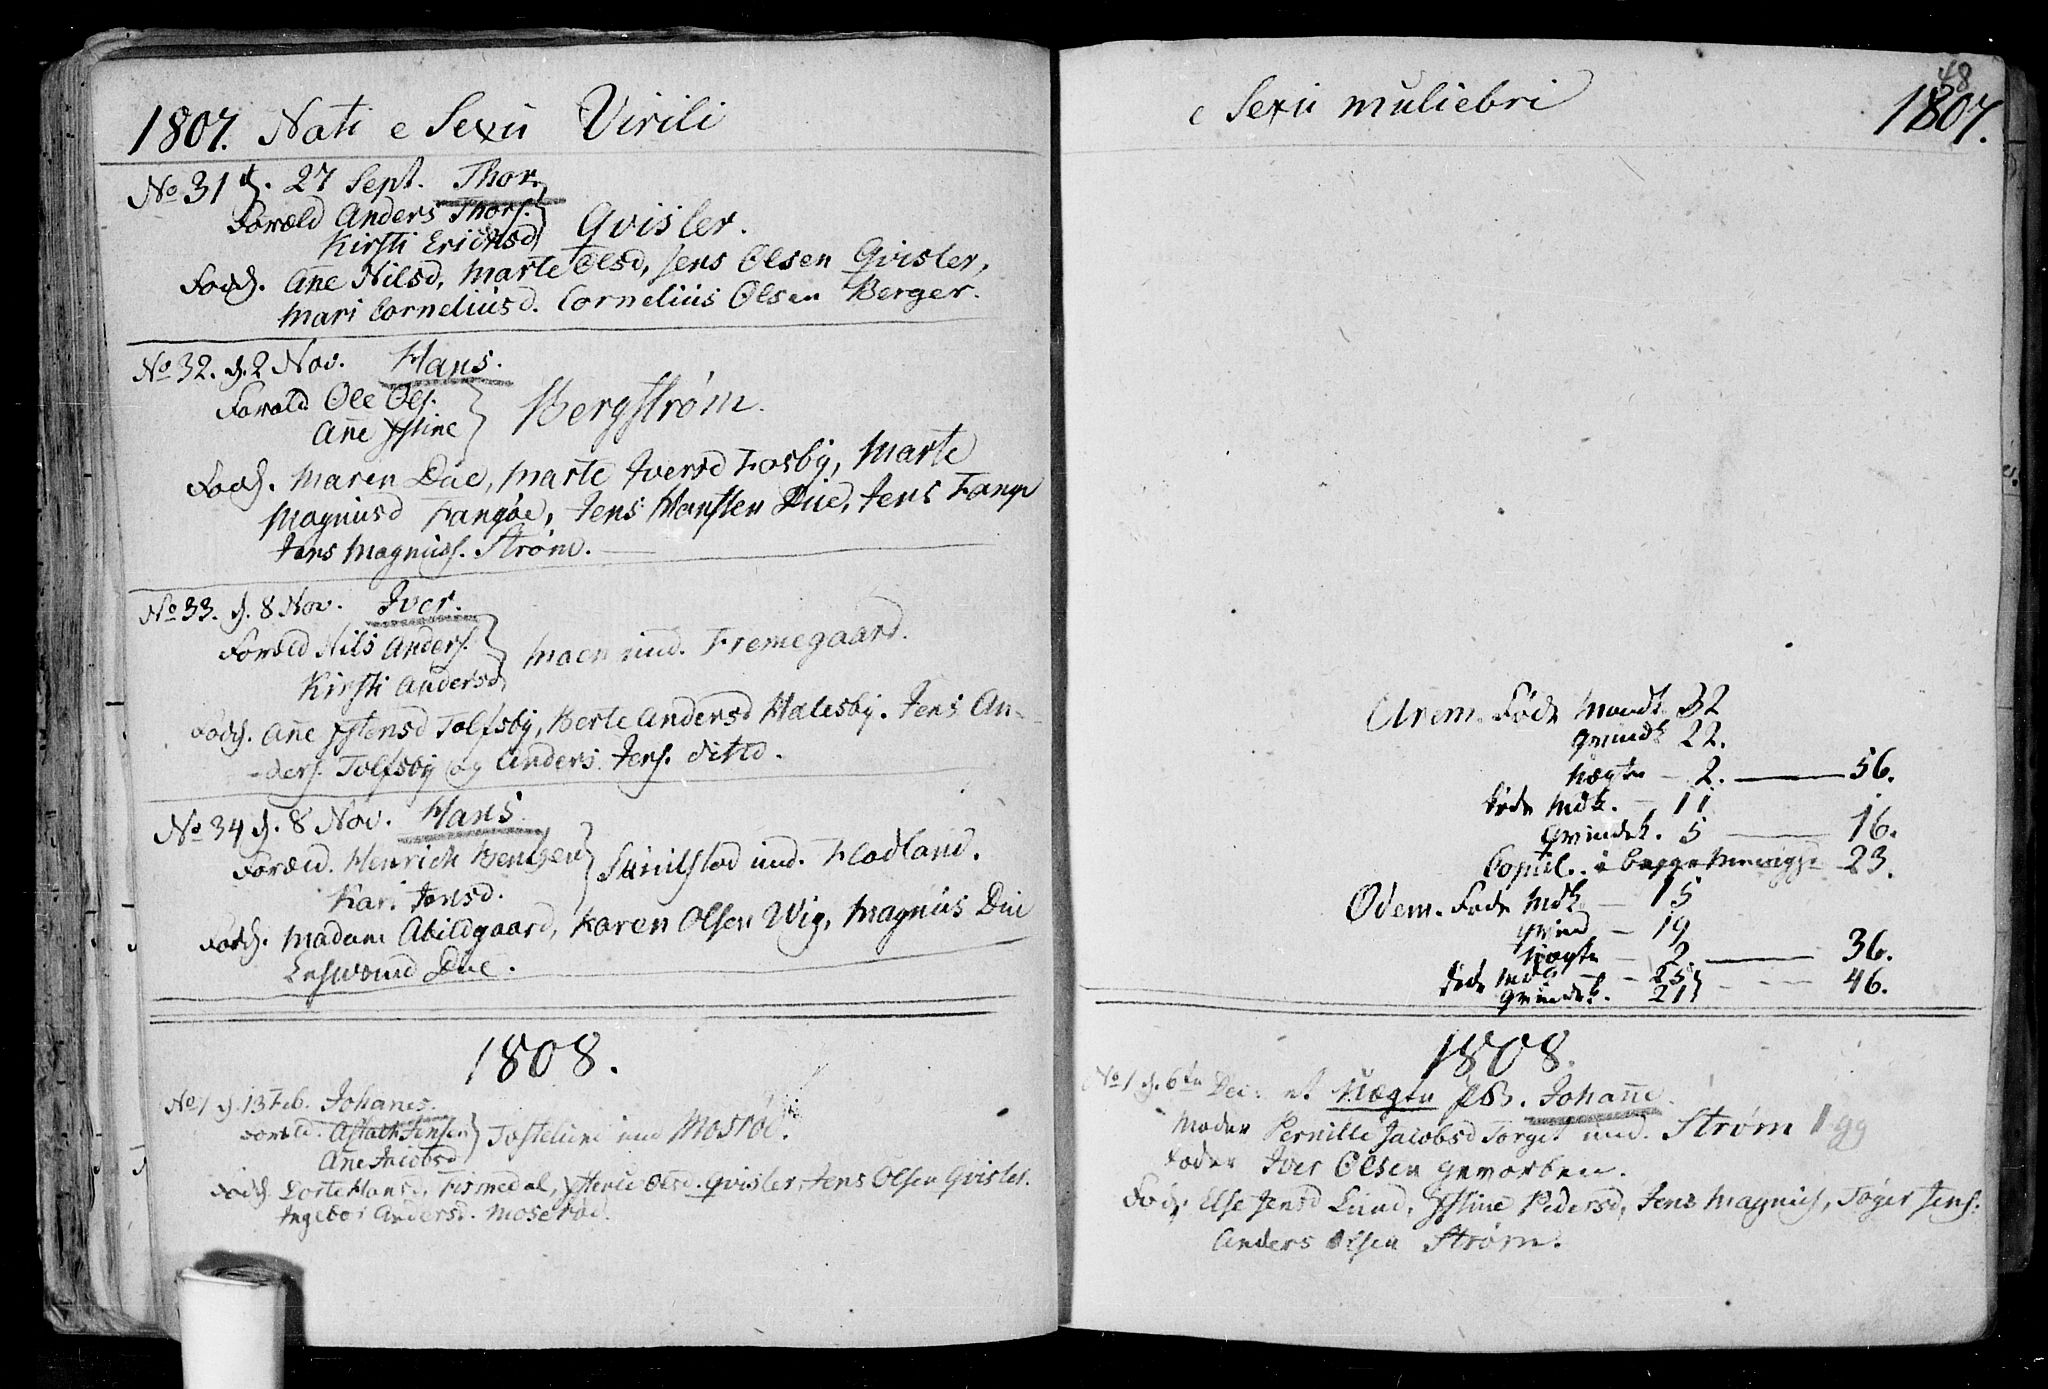 1807. Nati e Sexu Virili
No 31 d. 27 Sept. Thor.
Foræld Anders Thors.
Kirsti Ericksd
Qvisler.
Fadd. Ane Nilsd, Marte Olsd, Jens Olsen Qvisler,
Mari Corneliusd. Cornelius Olsen Berger.
No 32. d. 2 Nov. Hans.
Foræld Ole Ols.
Ane Jstine
Bergstrøm.
Fadd. Maren Due, Marte Iversd Fosby, Marte
Magnusd Fangøe, Jens Hansen Due, Jens Fangø
Jens Magnuss. Strøm.
No 33. d. 8 Nov. Iver.
Foræld Nils Anders.
Kirsti Andersd
Moen und. Fremegaard.
Fadd. Ane Jstensd Tolfsby, Berte Andersd Halesby. Jens An-
-ders. Tolfsby og Anders Jens. ditto.
No 34 d. 8 Nov. Hans.
Foræld. Henrich Bentsen
Kari Jensd.
und. Flodland.
Fadd. Madam Abildgaard, Karen Olsen Wig, Magnus Due
Due.
1808.
No 1 d. 13 Feb. Johanes.
Foræld. Aslach Jensen
Ane Jacobsd
und Mosrød.
Fadd. Dorte Hansd. Olsd. Qvisler, Jens Olsen Qvisler.
Ingebor Andersd. Moserød.
48
e Sexu muliebri 1807.
Arem. Føde Mandk 32
Qvindk 22.
Uægte - 2. — 56.
døde Mdk. - 11
Qvindek. 5 — 16.
Copul. i begge Menigge 23.
Ødem. Føde Mdk — 15
Qvind — 19
Uægte — 2. — 36.
døde Mdk — 25
Qvindek. — 21 - - - 46.
1808.
No 1 d. 6te Dec. et Uægte PB. Johanne.
Moder Pernille Jacobsd Torget und. Strøm
Fader Iver Olsen geworben.
Fad. Else Jensd Lund, Jstine Pedersd, Jens Magnus, Tøger Jens.
Anders Olsen Strøm.